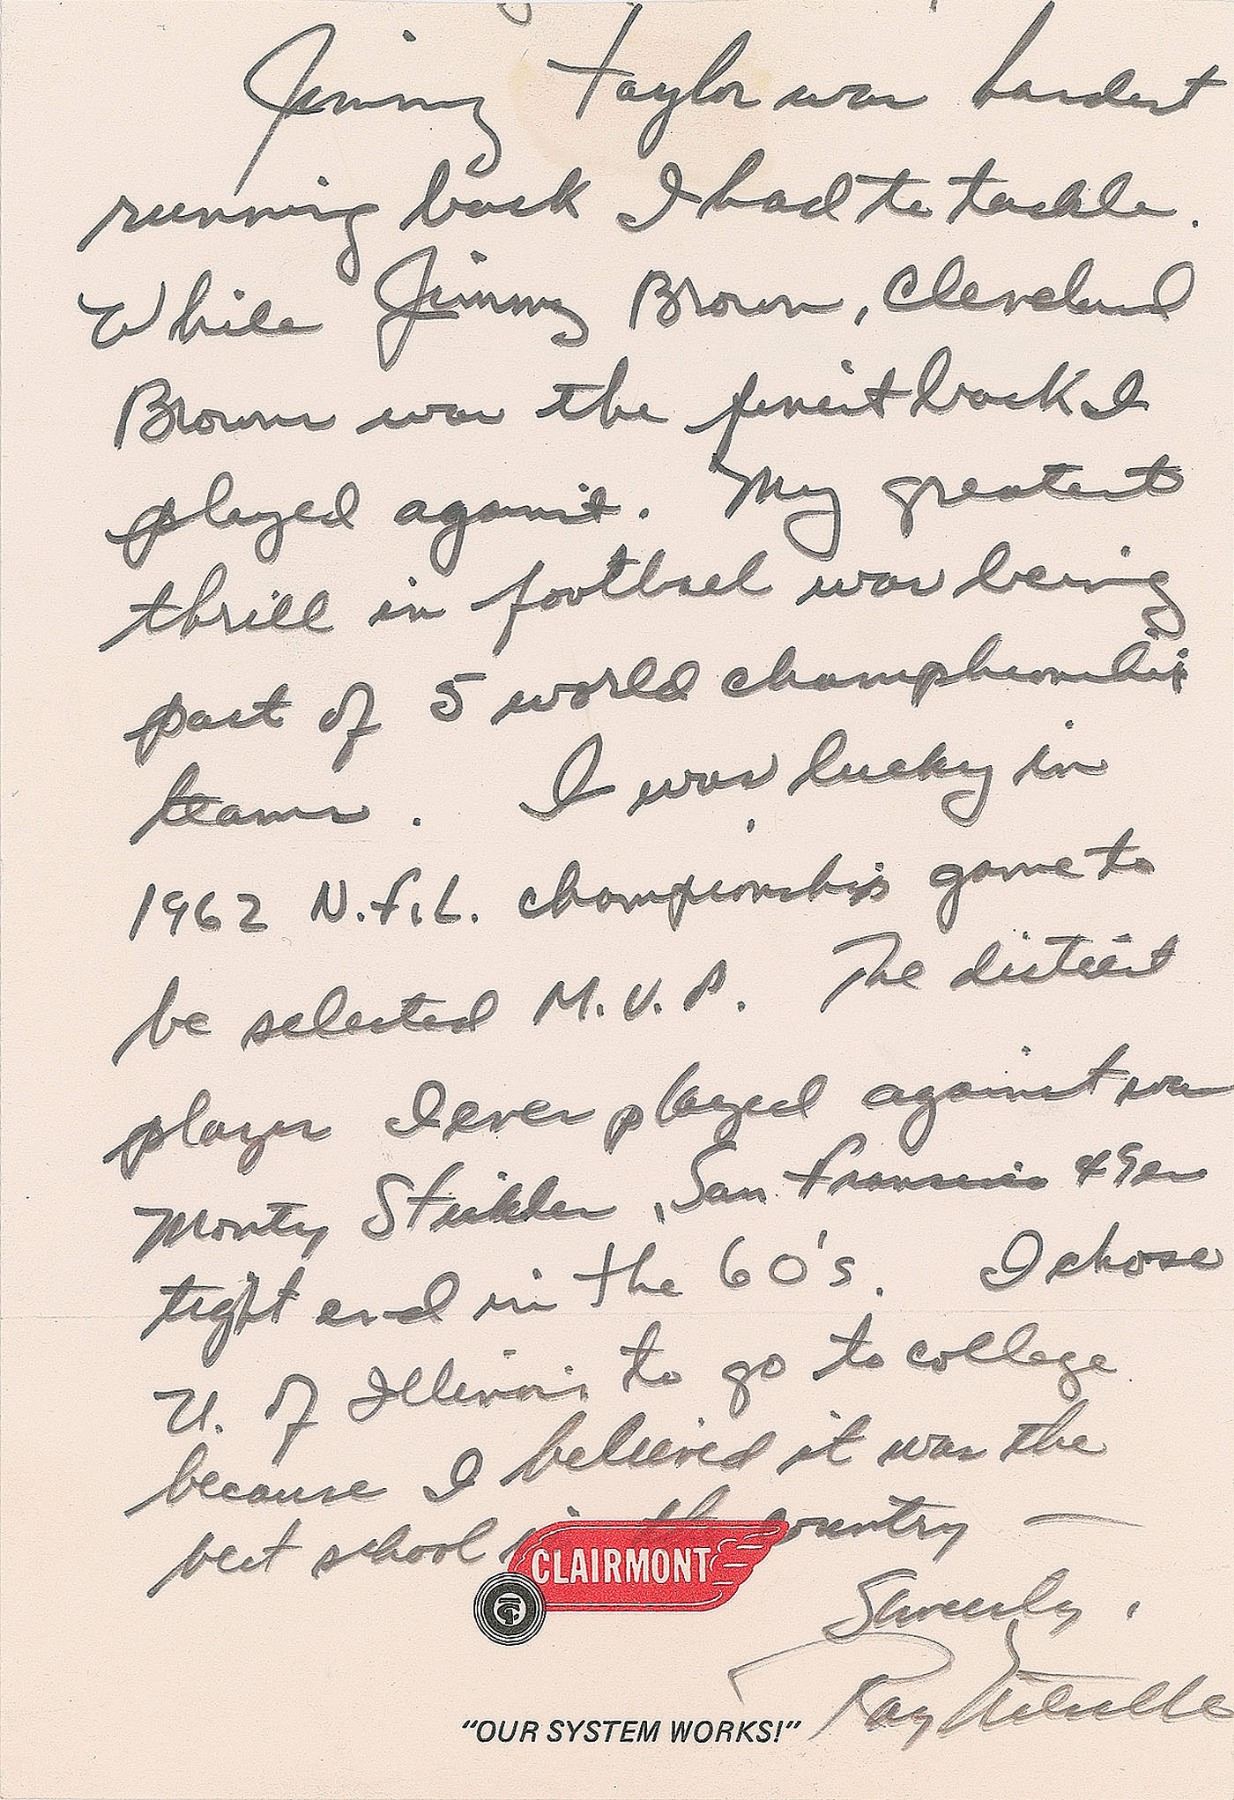 Jimmy Taylor was hardest
running back I had to tackle.
While Jimmy Brown, Cleveland
Browns was the finest back I
played against. My greatest
thrill in football was being
part of 5 world championship
teams. I was lucky in
1962 N.F.L. championship game to
be selected M.V.P. The dirtiest
player I ever played against was
Monty Stickles, San Francisco 49er
tight end in the 60's. I chose
U. of Illinois to go to college
because I believed it was the
best school in the country —
CLAIRMONT
Sincerely,
Ray Nitschke
"OUR SYSTEM WORKS!"